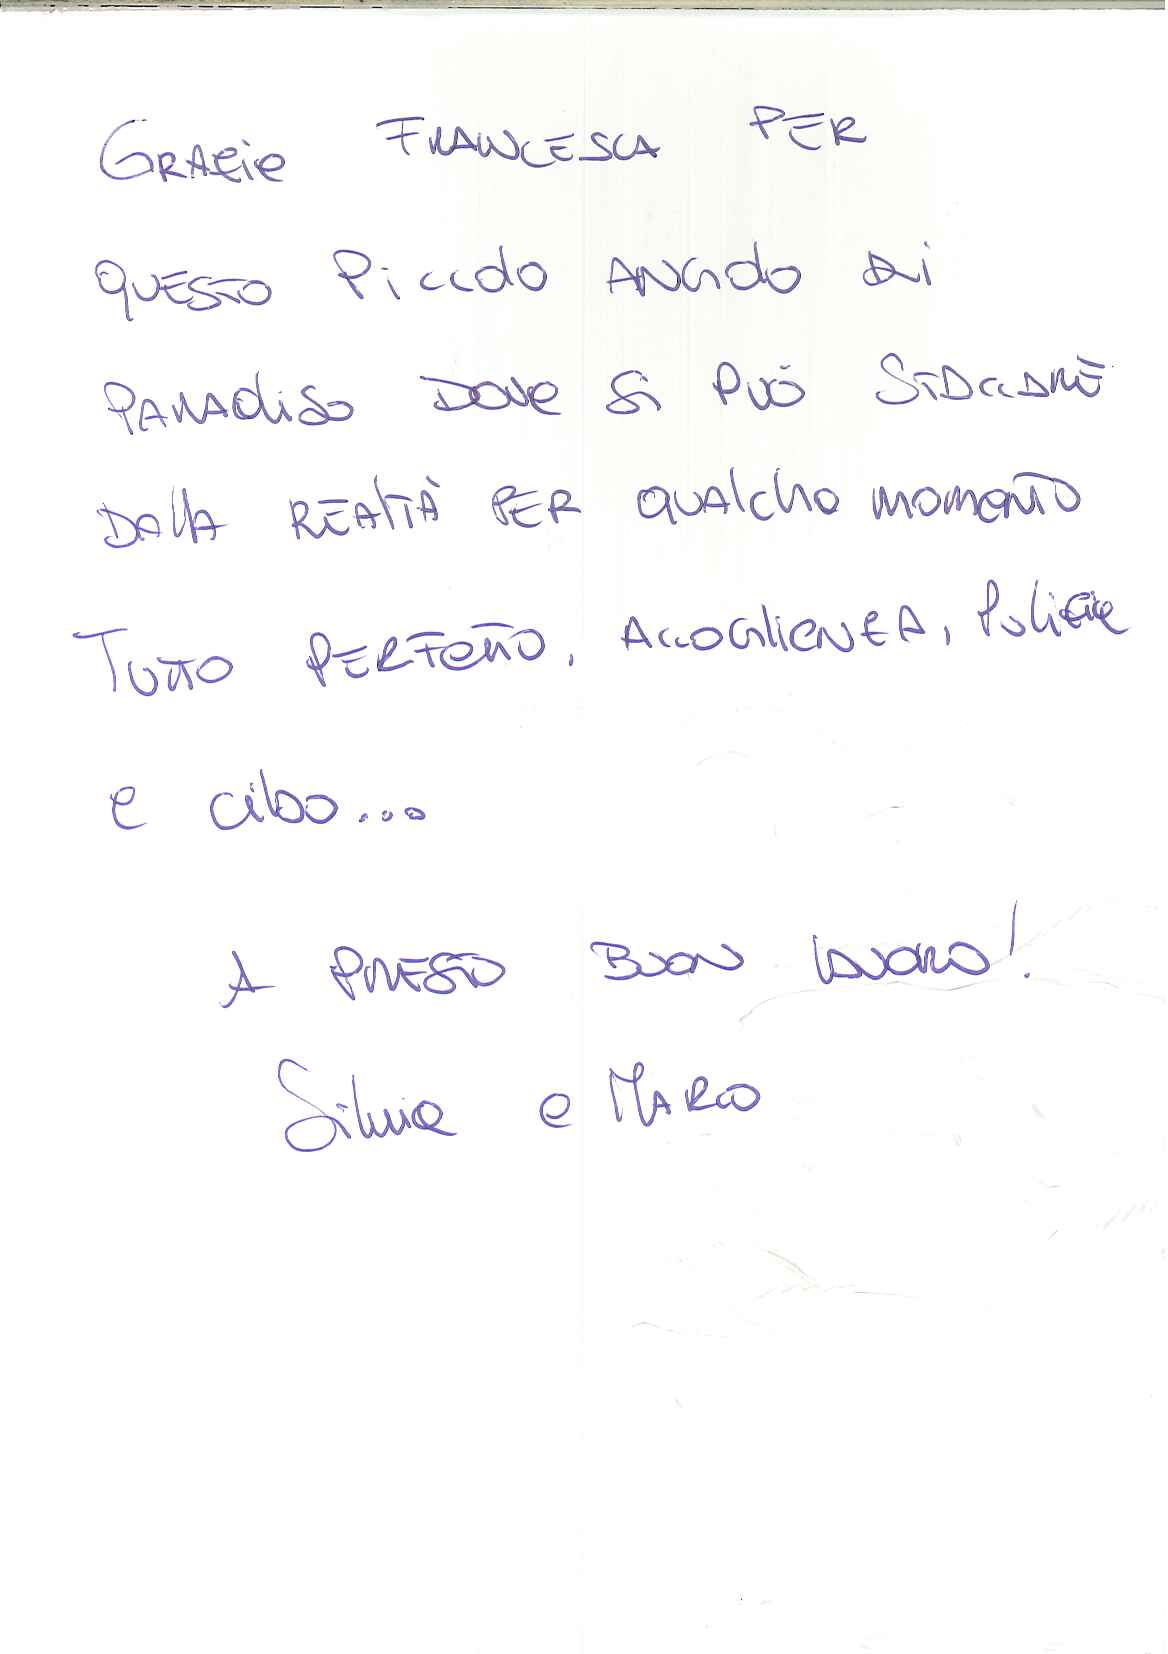 Grazie FRANCESCA PER
QUESTO Piccolo ANGOLO di
PARADiSo DOVE Si PUÒ STACCARE
DAllA REAlTÀ PER QUAlche MOMENTO
TUTTO PERFETTO, ACCOGlIENZA, PUlizie
e cibo...
A PRESTO BUON lAVORO!
Silvia e MARCO